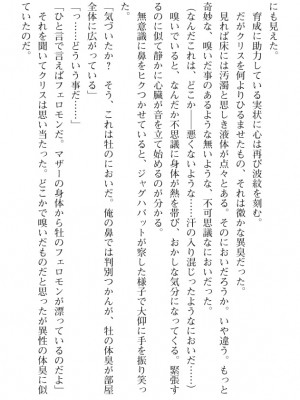 にも見えた。
　育成に助力している実状に心は再び波紋を刻む。
　だがクリスを何よりひるませたもの、それは微かな異臭だった。
　見れば床には汚濁と思しき液体が点々とある。そのにおいだろうか。いや違う。もっと
奇妙な、嗅いだ事のあるような無いような、不可思議なにおいだった。
（なんだこれは、どこか――悪くないような……汗の入り混じったようなにおいだ……）
　嗅いでいると、なんだか不思議に身体が熱を帯び、おかしな気分になってくる。緊張す
るのに似て静かに心臓が音を立て始めるのが分かる。
　無意識に鼻をヒクつかせていると、ジャグハバットが察した様子で大仰に手を振り笑っ
「気づいたか？　そう、これは牡のにおいだ。俺の鼻では判別つかんが、牡の体臭が部屋
全体に広がっている」
「っ……どういう事だ……」
「ひと言で言えばフェロモンだ。マザーの身体から牡のフェロモンが漂っているのだよ」
　それを聞いてクリスは思い当たった。どこかで嗅いだものだと思ったが異性の体臭に似
ていたのだ。